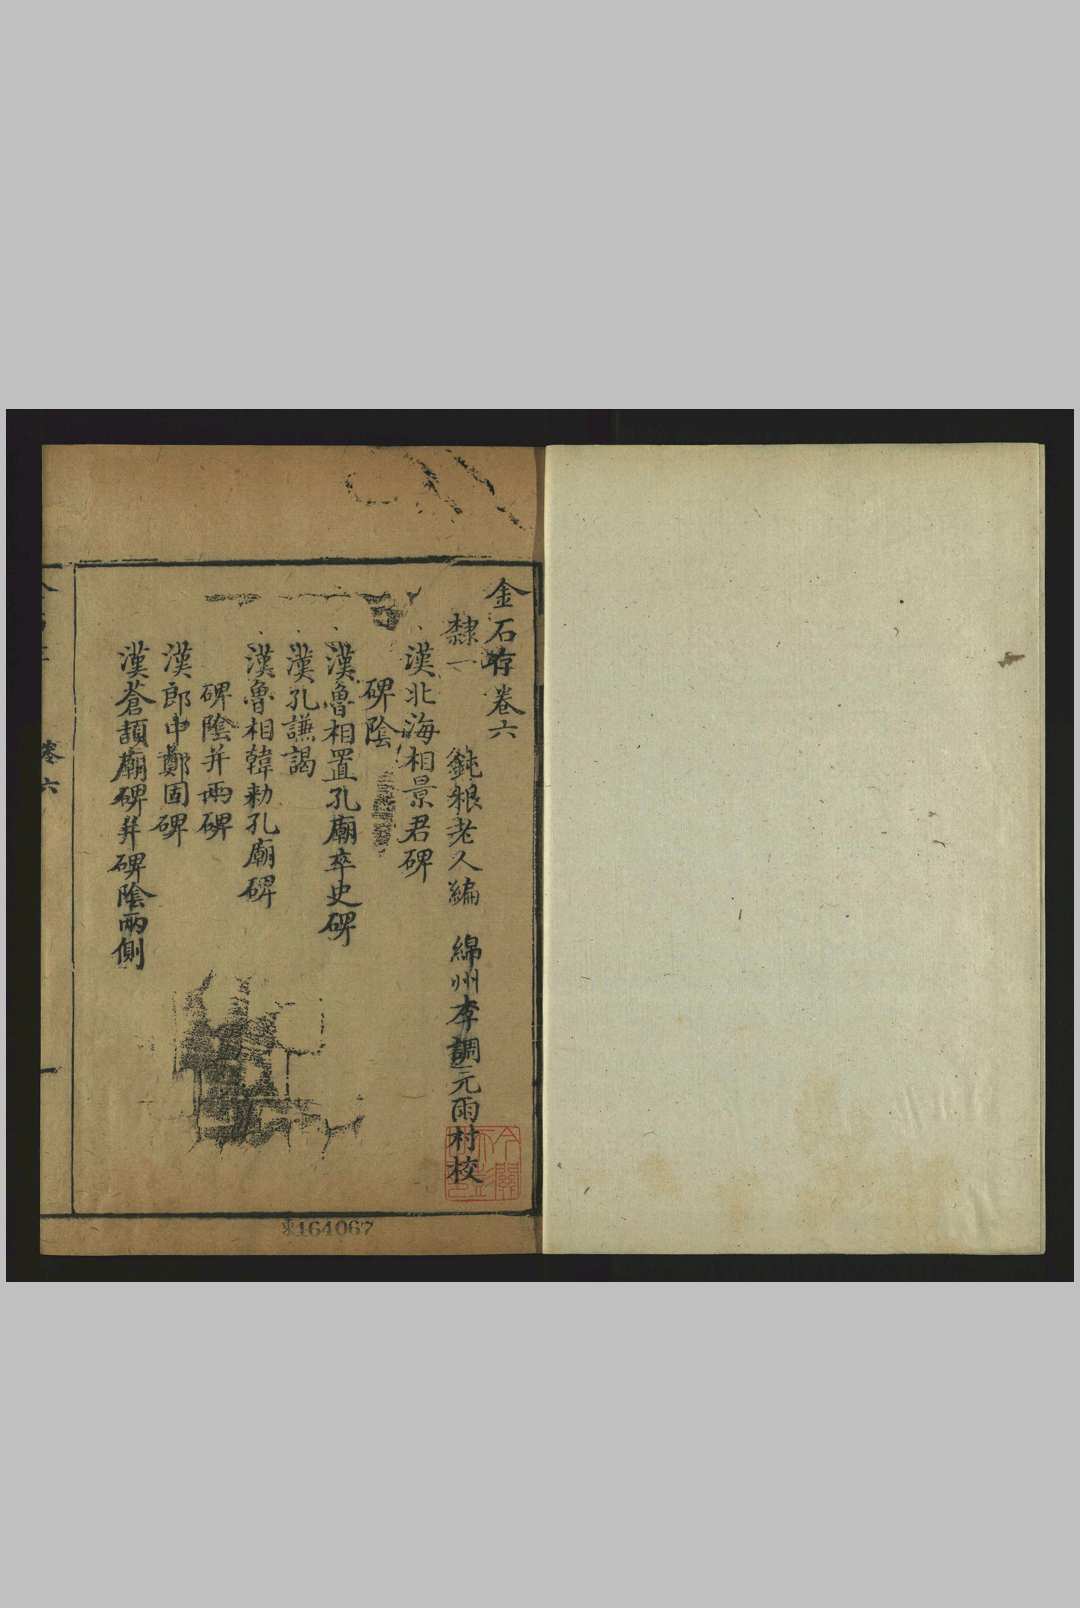 金石存卷六
隸一 鈍根老人編 綿州李調元雨村校
漢北海相景君碑
碑陰
漢魯相置孔廟卒史碑
漢孔謙碣
漢魯相韓勑孔廟碑
碑陰并兩碑
漢郎中鄭固碑
漢蒼頡廟碑并碑陰兩側
卷六
一
164067